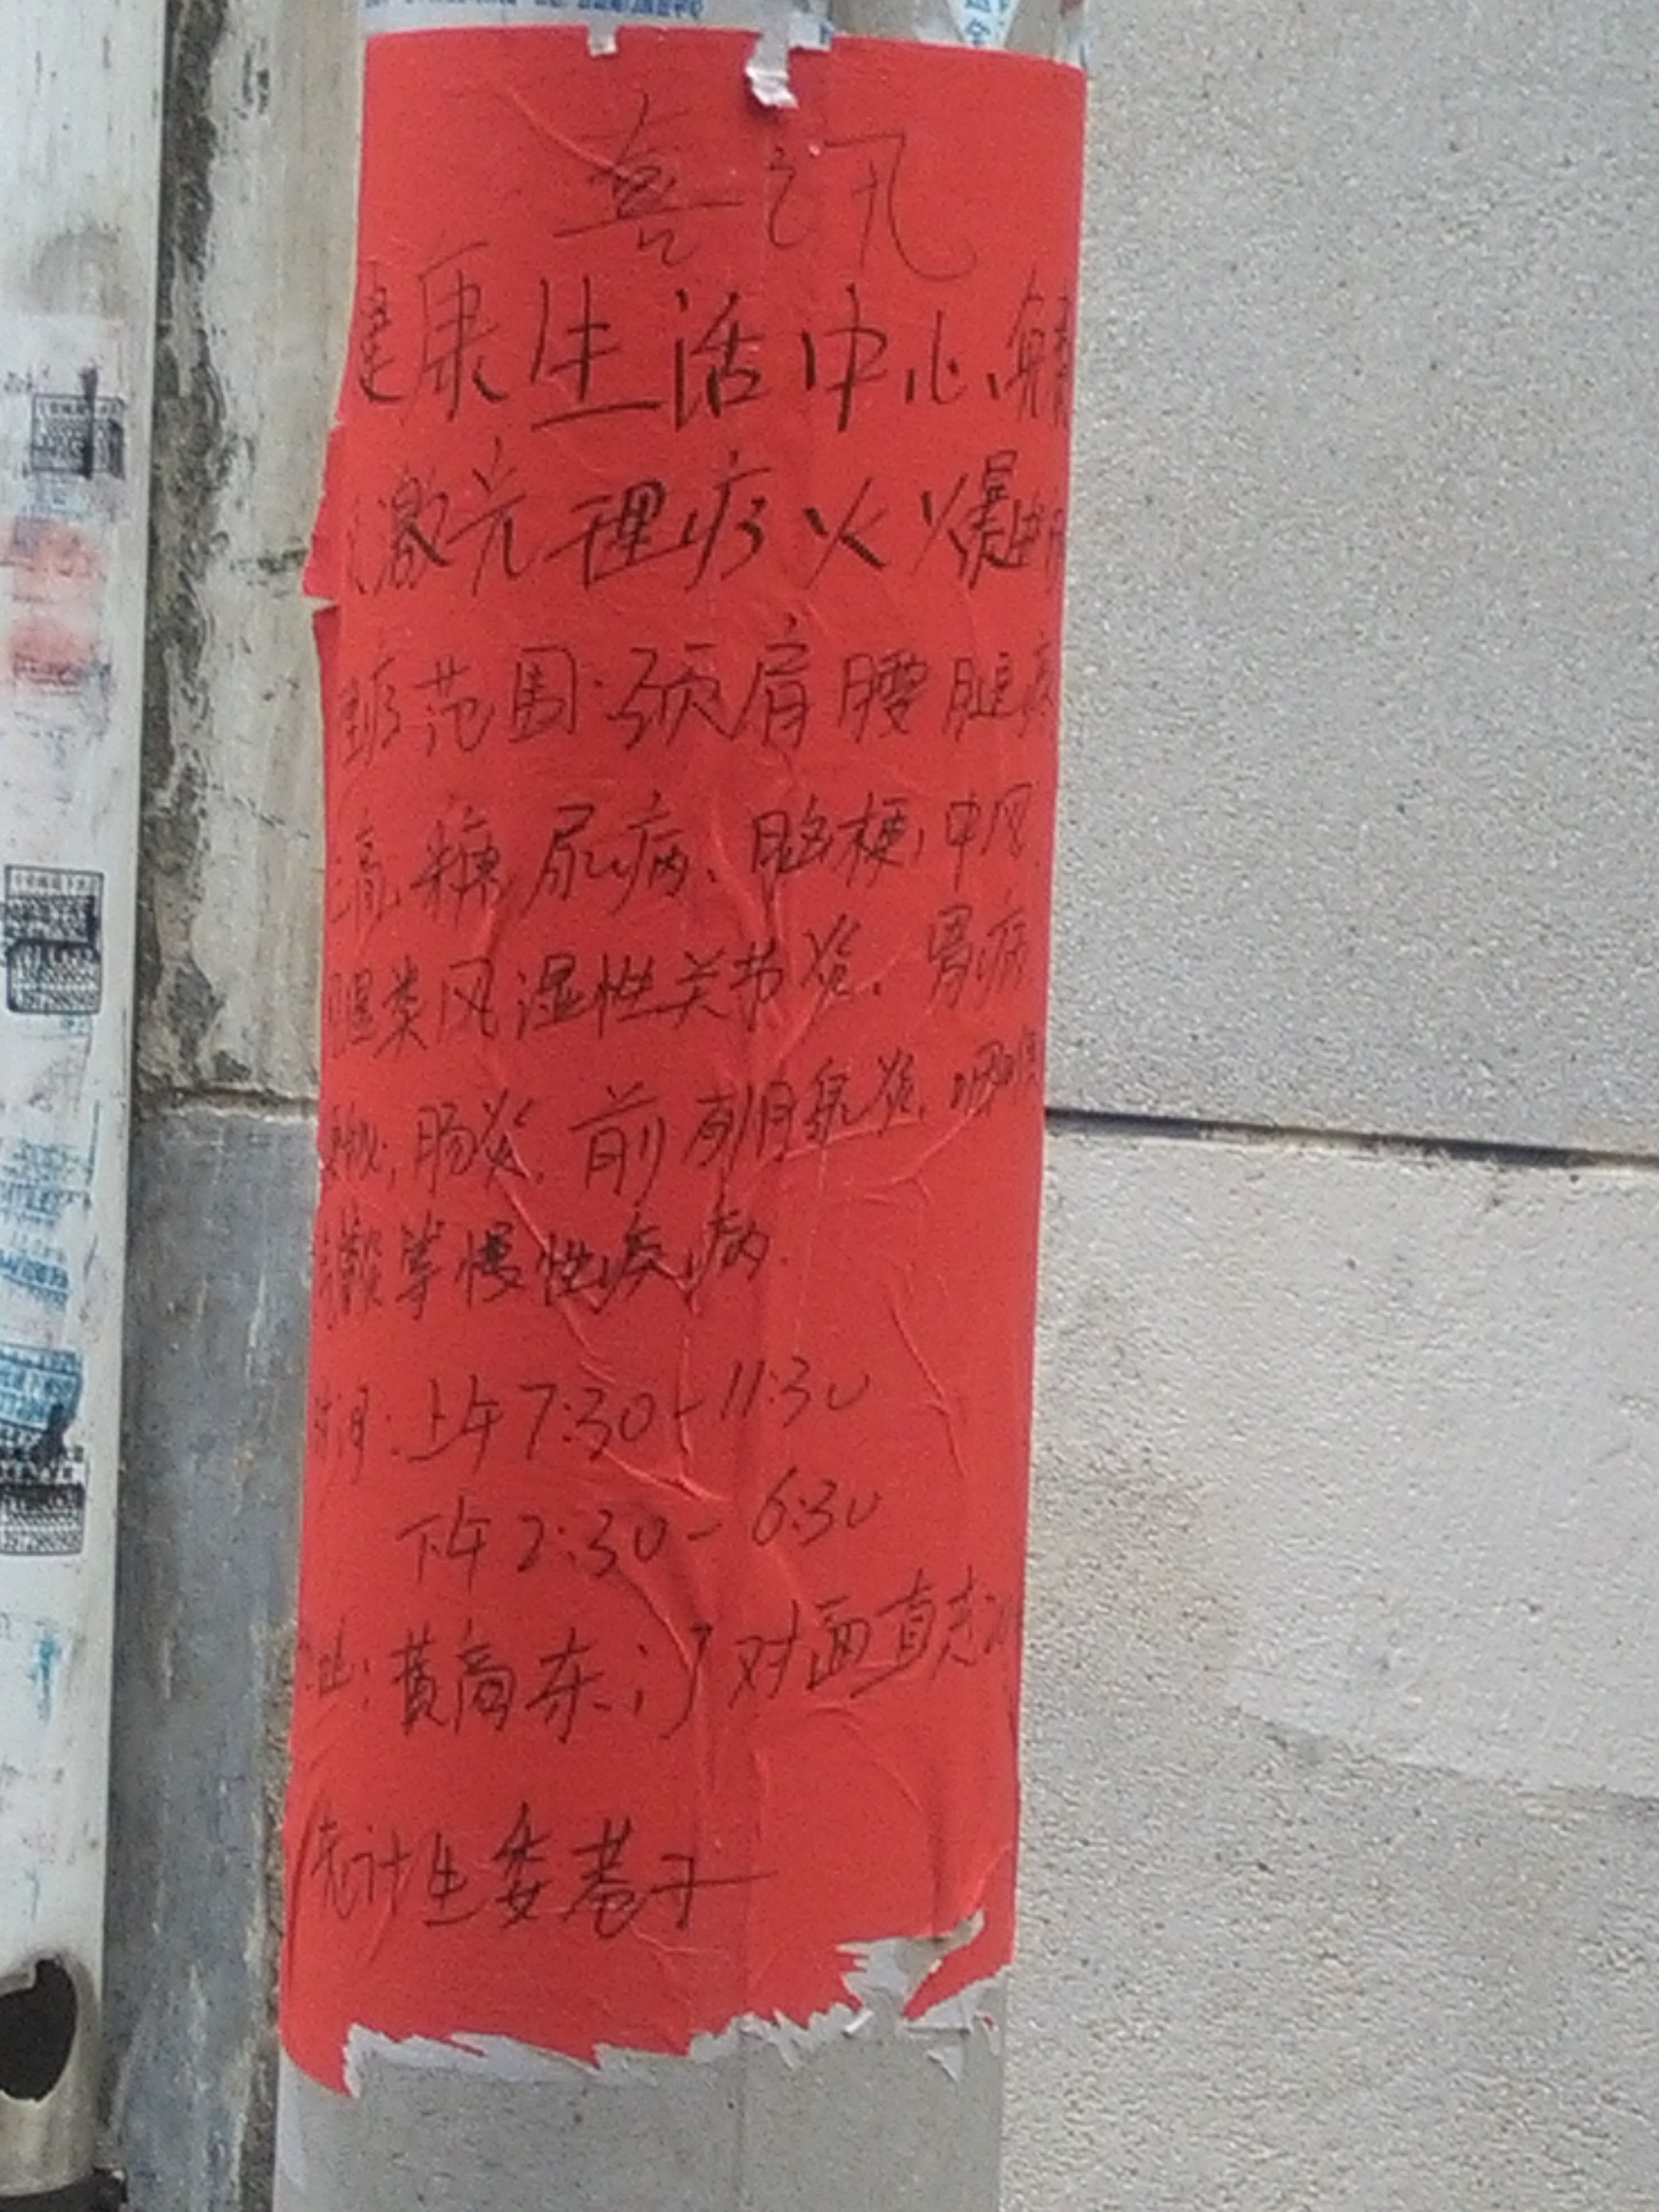 喜讯
健康生活中心
激光理疗火爆
范围:颈肩腰腿
高,糖尿病、脑梗,中风
湿类风湿性关节炎、胃病
肠炎,前列腺炎,咽
嗽等慢性疾病.
时间:上午7:30-11:30
下午2:30-6:30
址:黄商东门对面直走
老计生委巷子